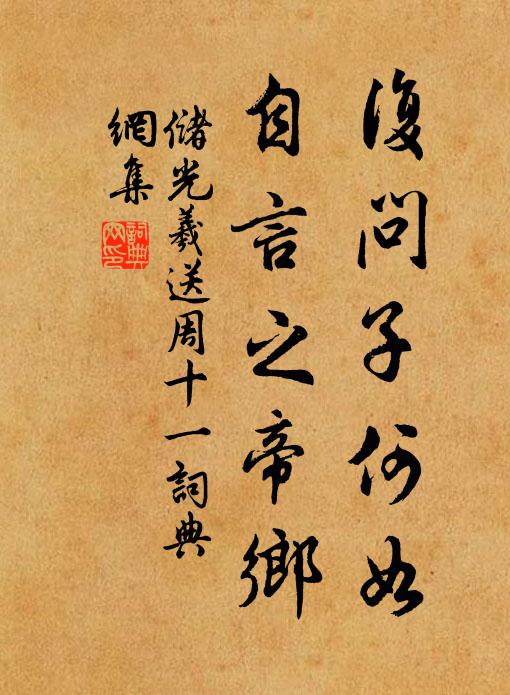 復問子何如
自言之帝鄉
儲光羲送周十一詞典
網集
詞典
网印